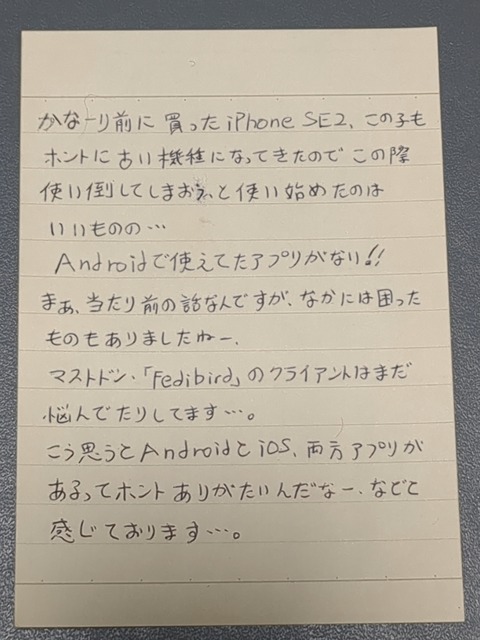 かなーり前に買ったiPhone SE2、この子も
ホントに古い機種になってきたのでこの際
使い倒してしまおうと使い始めたのは
いいものの…
Androidで使えてたアプリがない!!
まぁ、当たり前の話なんですが、なかには困った
ものもありましたねー、
マストドン・「Fedibird」のクライアントはまだ
悩んでたりしてます…。
こう思うとAndroidとiOS、両方アプリが
あるってホントありがたいんだなー、などと
感じております…。